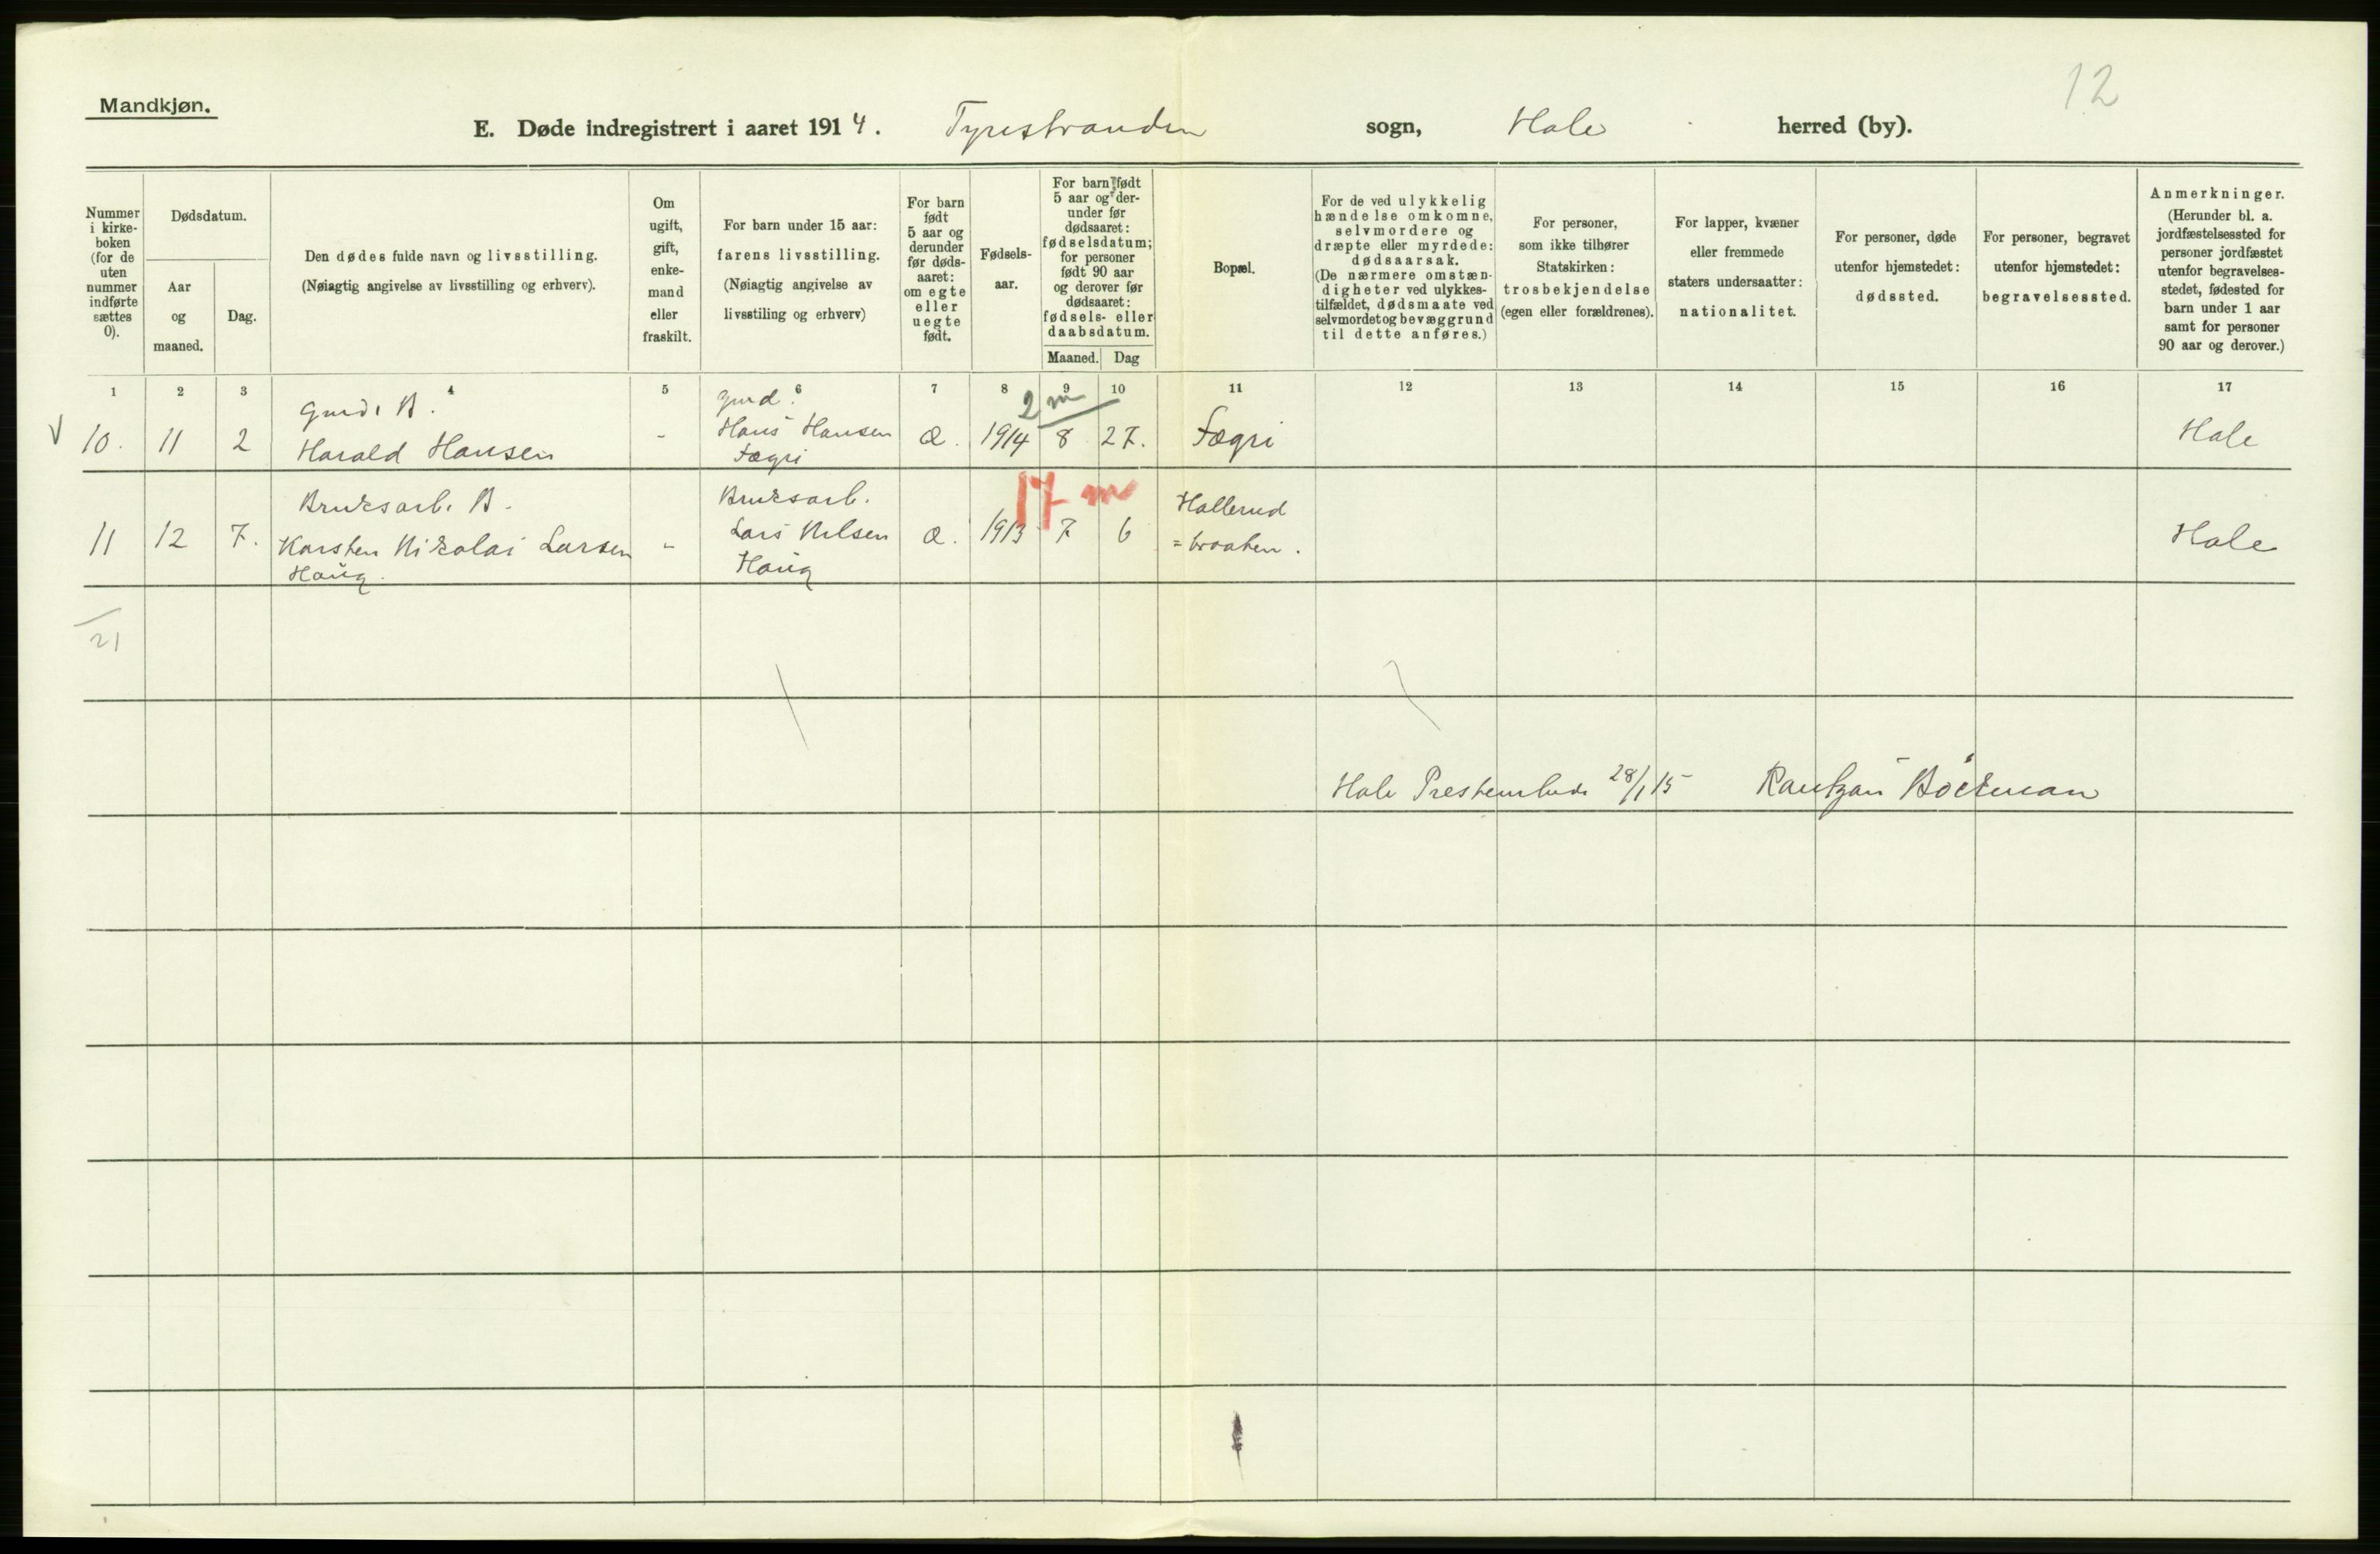 12
Mandkjøn.
E. Døde indregistrert i aaret 1914. Tyrestranden sogn, Hole herred (by).
Nummer
i kirke-
boken
(for de
uten
nummer
indførte
sættes
0).
Dødsdatum.
Aar
og
maaned.
Dag.
Den dødes fulde navn og livsstilling.
(Nøiagtig angivelse av livsstilling og erhverv).
Om
ugift,
gift,
enke-
mand
eller
fraskilt.
For barn under 15 aar:
farens livsstilling.
(Nøiagtig angivelse av
livsstiling og erhverv)
For barn
født
5 aar og
derunder
før døds-
aaret:
om egte
eller
uegte
født.
Fødsels-
aar.
For barn født
5 aar og der-
under før
dødsaaret:
fødselsdatum;
for personer
født 90 aar
og derover før
dødsaaret:
fødsels- eller
daabsdatum.
Maaned. Dag
Bopæl.
For de ved ulykkelig
hændelse omkomne,
selvmordere og
dræpte eller myrdede:
dødsaarsak.
(De nærmere omstæn-
digheter ved ulykkes-
tilfældet, dødsmaate ved
selvmordet og bevæggrund
til dette anføres.)
For personer,
som ikke tilhører
Statskirken:
trosbekjendelse
(egen eller forældrenes).
For lapper, kvæner
eller fremmede
staters undersaatter:
nationalitet.
For personer, døde
utenfor hjemstedet:
dødssted.
For personer, begravet
utenfor hjemstedet:
begravelsessted.
Anmerkninger.
(Herunder bl. a.
jordfæstelsessted for
personer jordfæstet
utenfor begravelses-
stedet, fødested for
barn under 1 aar
samt for personer
90 aar og derover.)
1 2 3 4 5 6 7 8 9 10 11 12 13 14 15 16 17
Gmd. B. Gmd. 2 m
10. 11 2 Harald Hansen - Hans Hansen Æ. 1914 8 27. Fægri Hole
Fægri
Bruksarb. B. Bruksarb. 17 m Hollerud
11 12 7. Karsten Nikolai Larsen - Lars Nilsen Æ. 1913 7 6 =braaten. Hole
Haug. Haug
21
Hole Prestembede 28/1 15 Rantzau Böckman